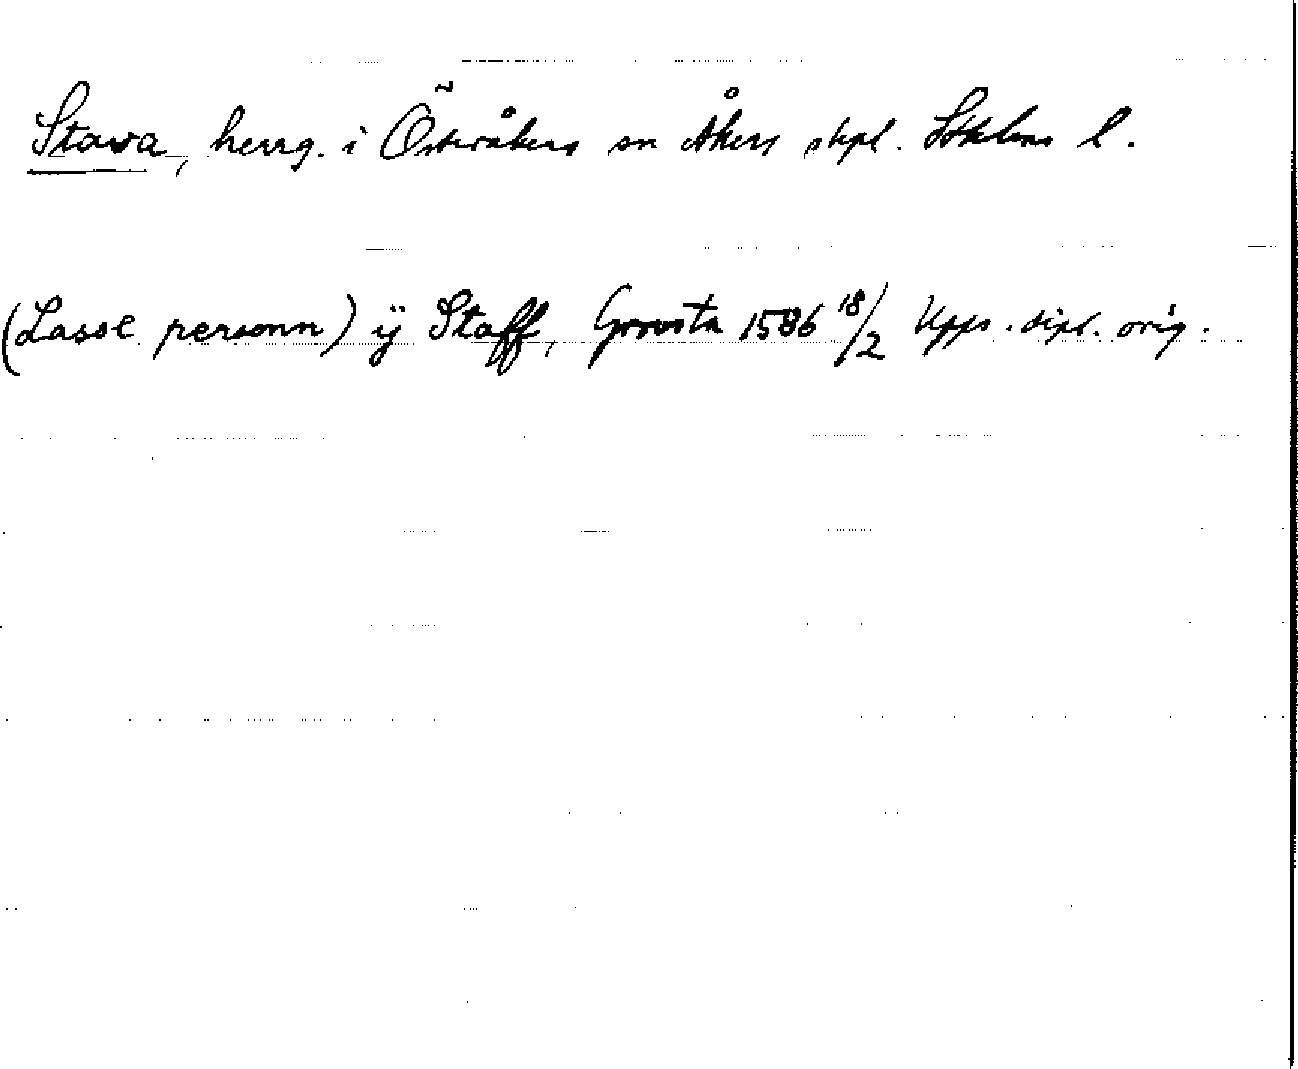 Stava, herrg. i Österåkers sn Åkers skpl. Sthlms l.
(Lasse personn) ÿ Staff, Grovsta 1586 18/2 Upps. dipl. orig.